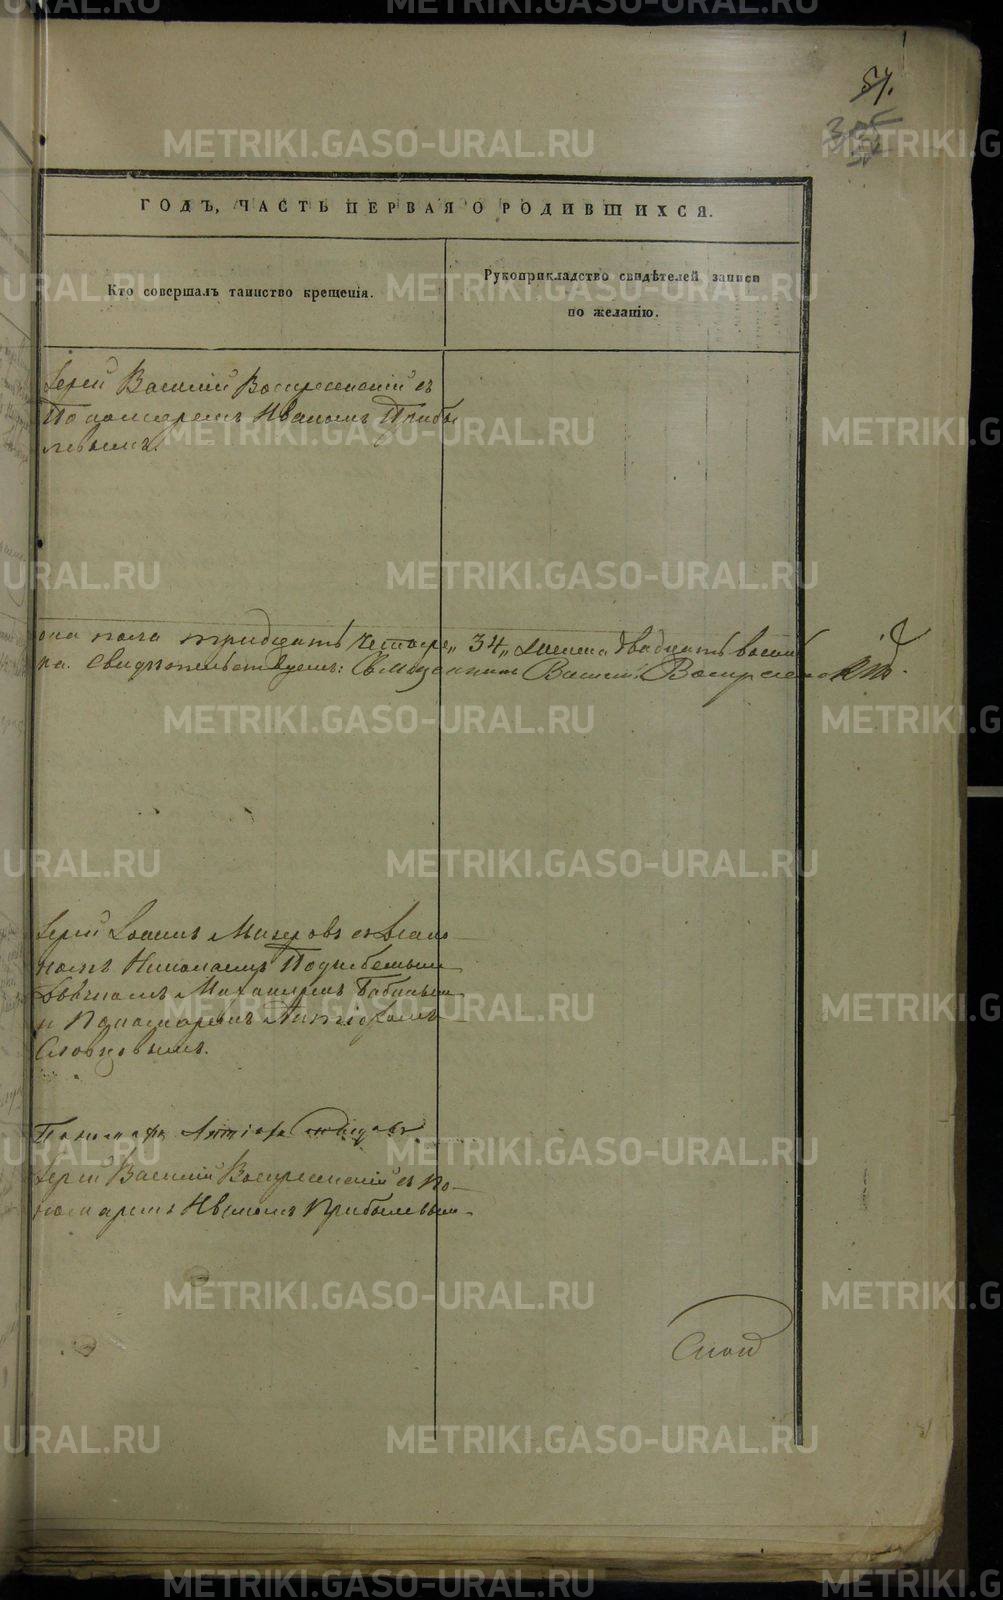 57.
ГОДЪ, ЧАСТЬ ПЕРВАЯ О РОДИВШИХСЯ.
Кто совершалъ таинство крещенія.
Рукоприкладство свидѣтелей записи
по желанію.
Іерей Василій Воскресенскій съ
Пономаремъ Иваномъ Прибы
левымъ.
пола тридцать четыре „34„ двадцать восемь
Свидѣтельствуемъ: Священникъ Васил. Воскресенскій.
Іерей Іоаннъ Мизеровъ съ Діако
номъ Николаемъ
Дьячкомъ Михаиломъ Бабинымъ
и Пономаремъ Антіохомъ
Словцовымъ.
Пономарь Антіохъ
Іерей Василій Воскресенскій съ По-
номаремъ Иваномъ Прибылевым.
METRIKI.GASO-URAL.RU